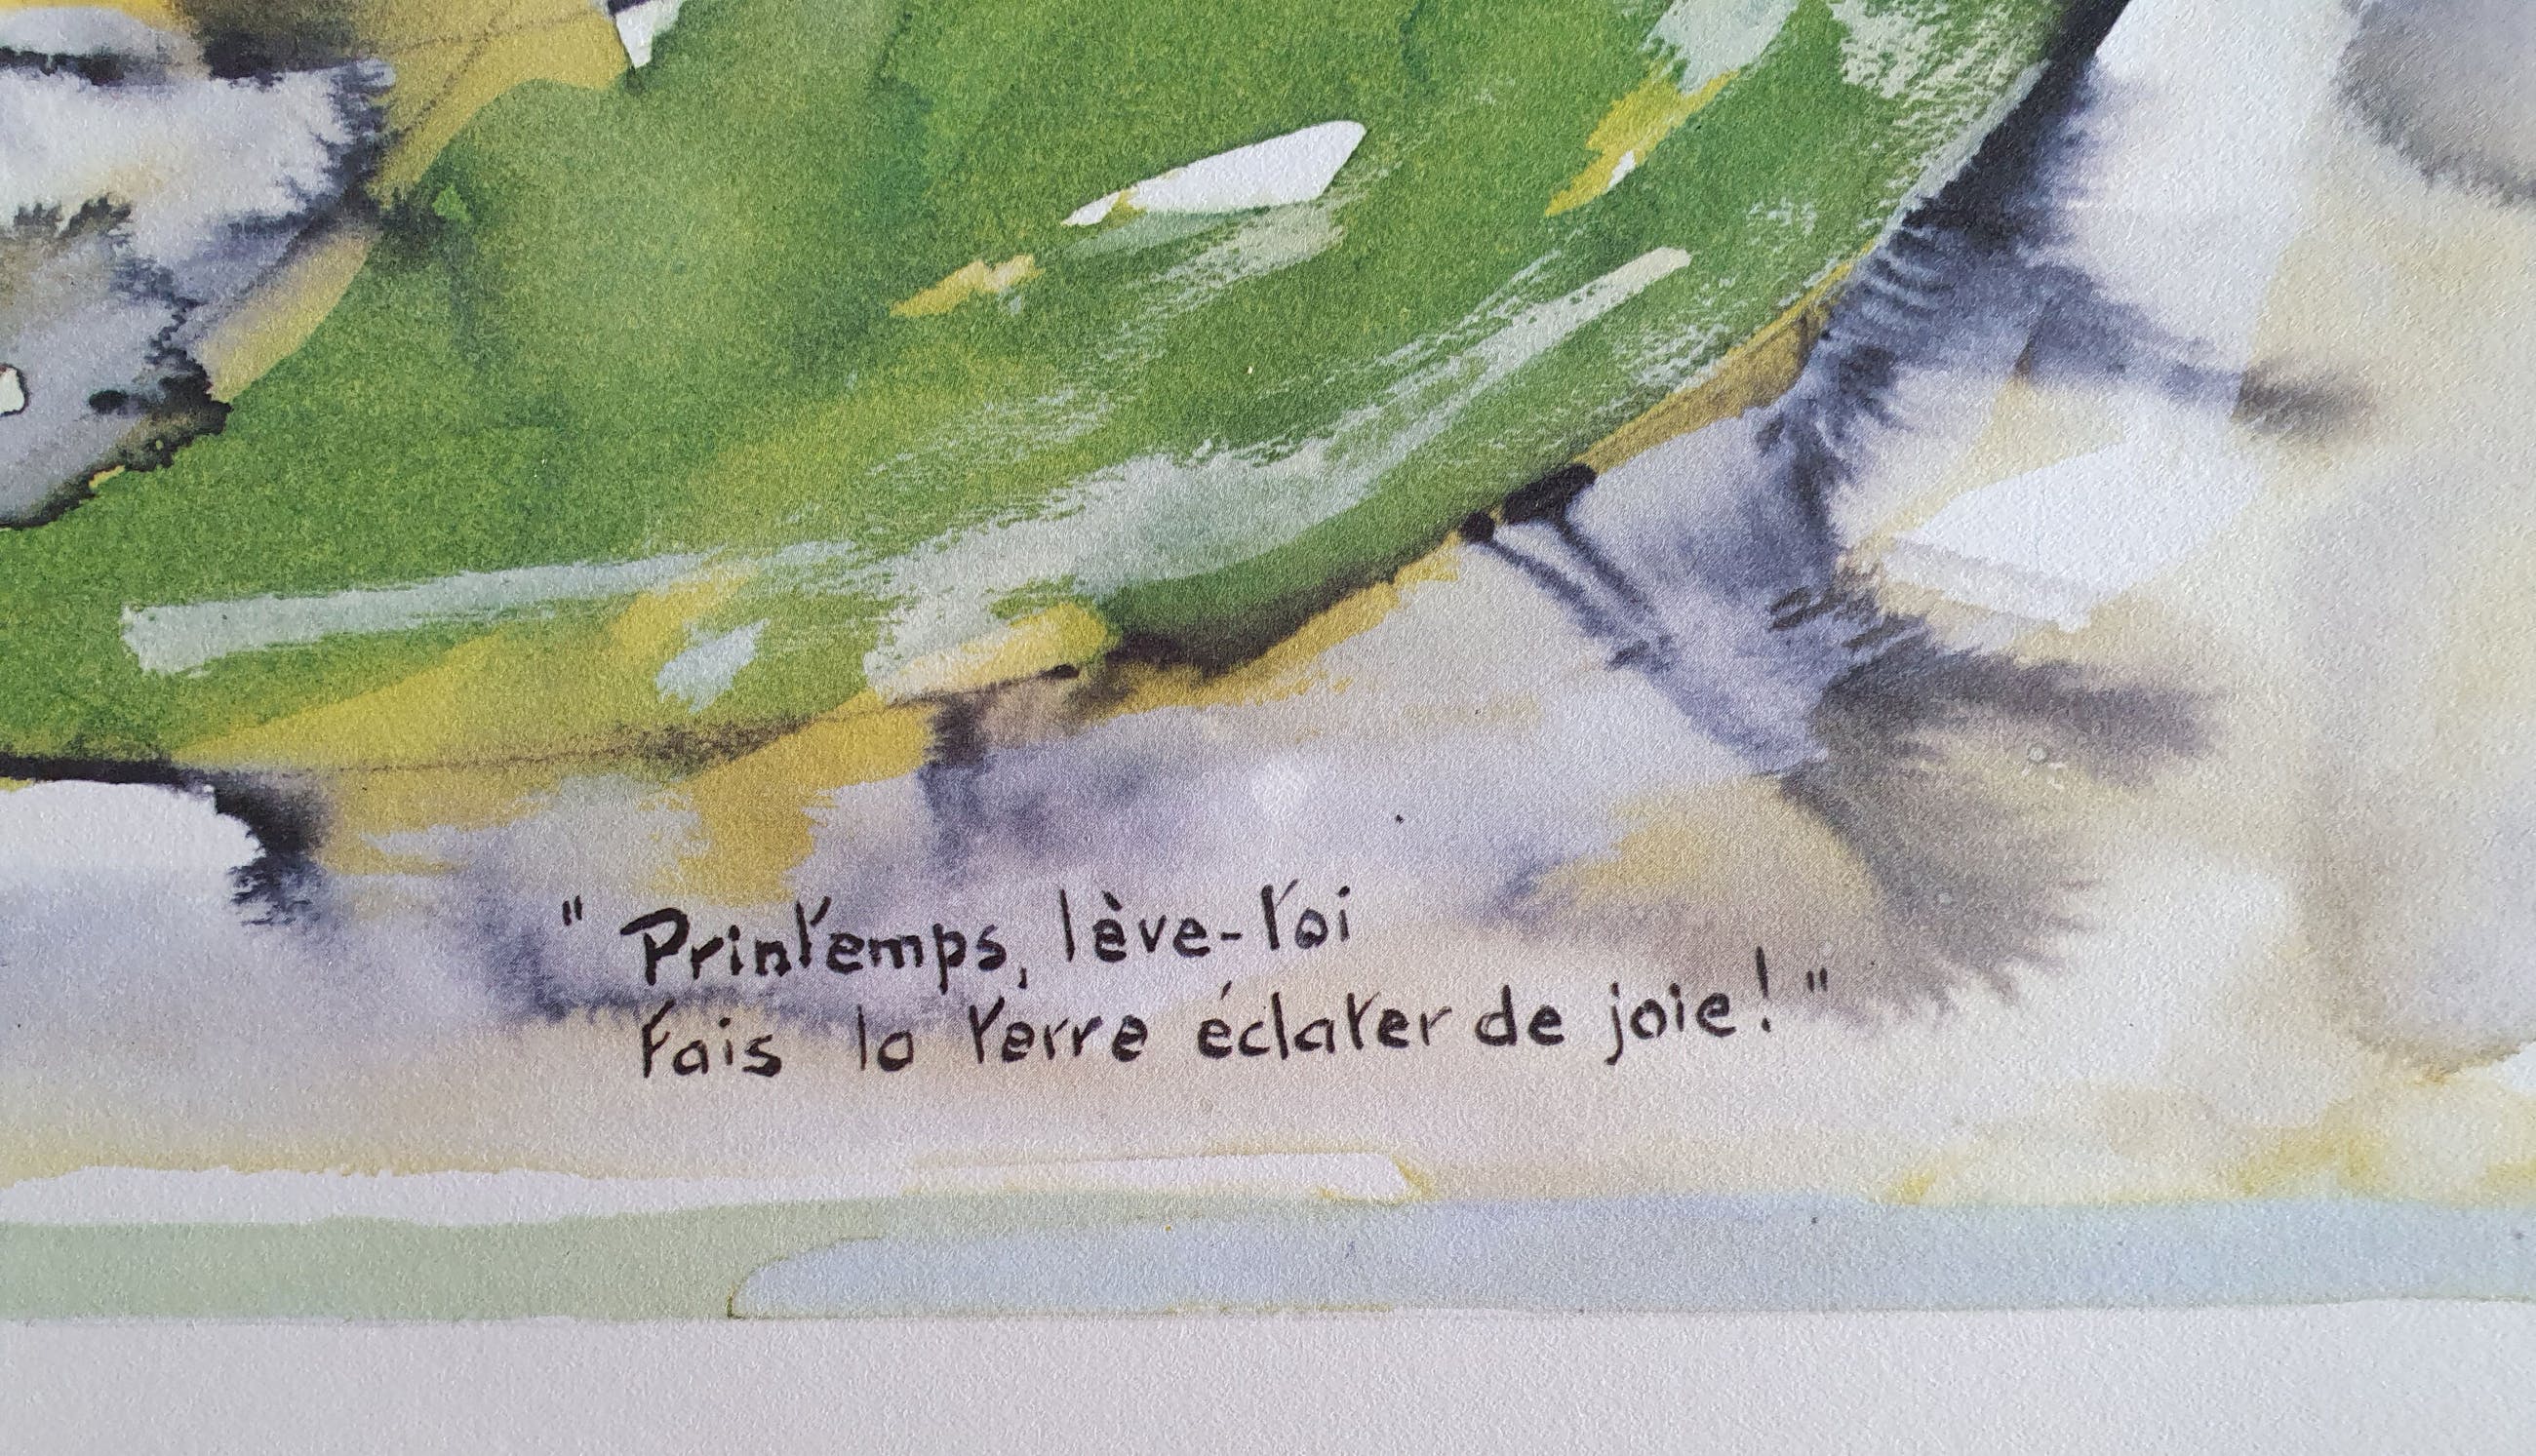 " Printemps, lève-toi
Fais la terre éclater de joie ! "